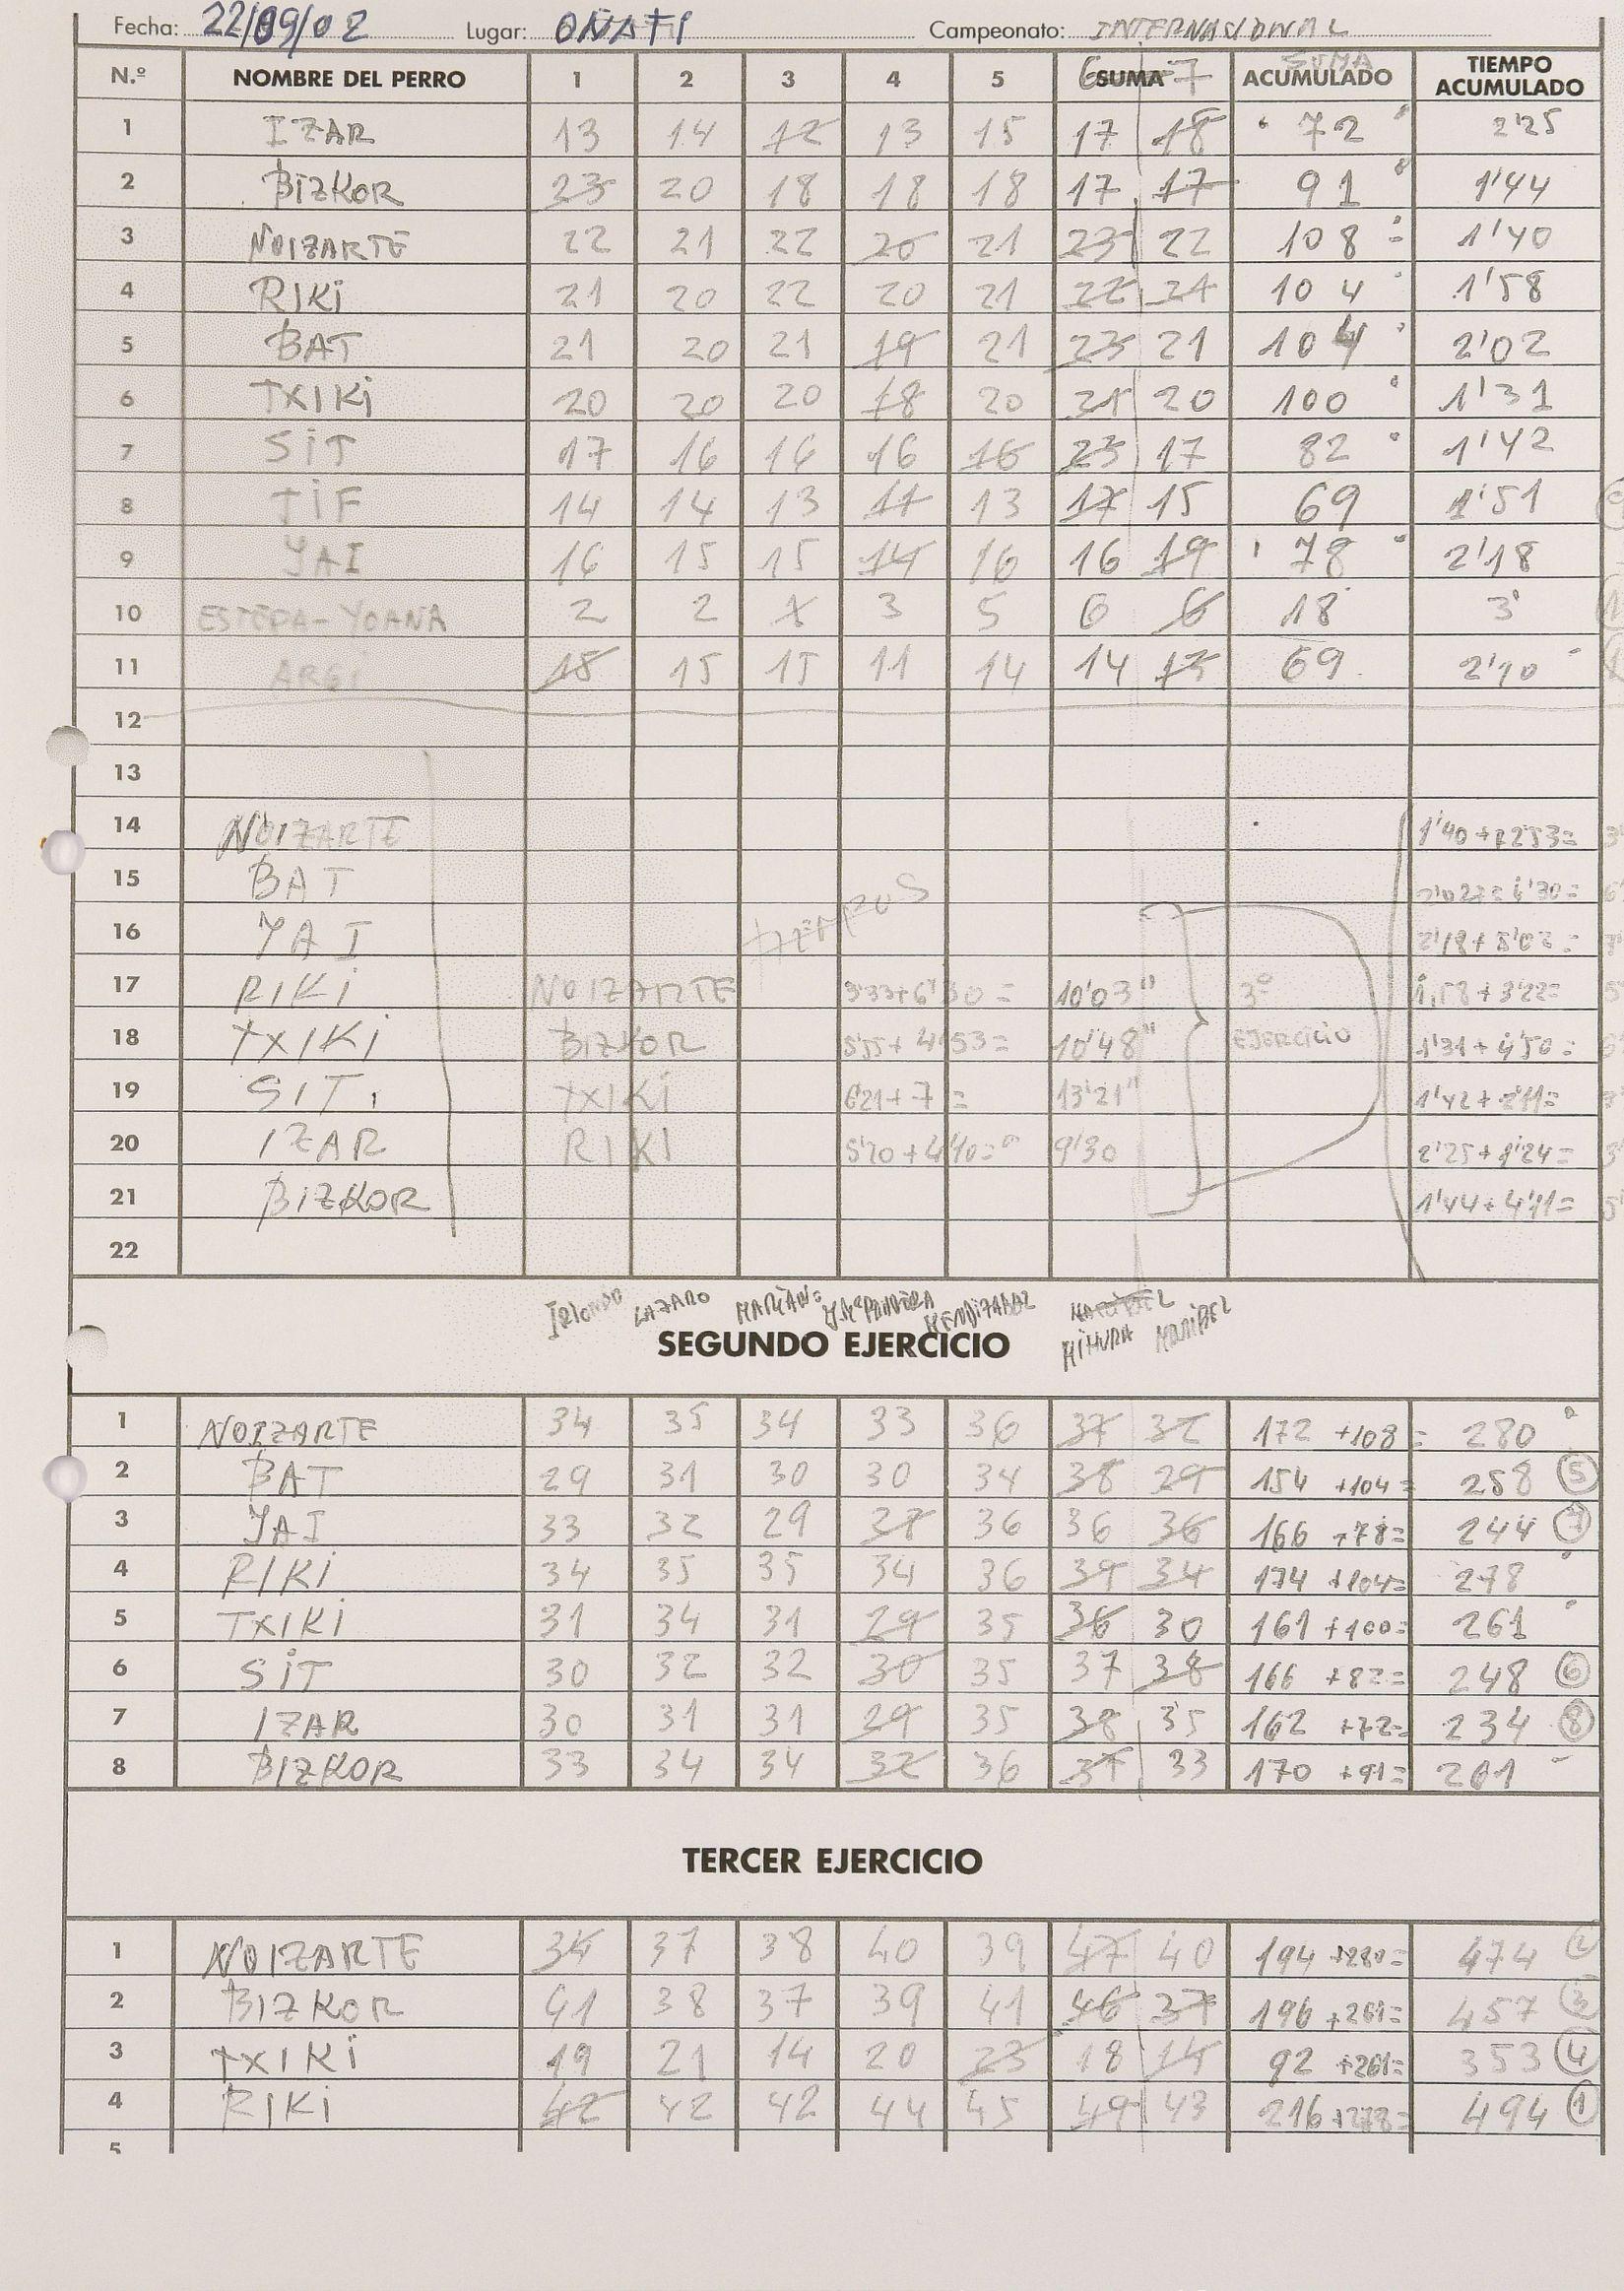 Fecha: 22/09/02 Lugar: OÑATI Campeonato: INTERNASIONAL
N.º NOMBRE DEL PERRO 1 2 3 4 5 6 SUMA 7 SUMA ACUMULADO TIEMPO ACUMULADO
1 IZAR 13 14 12 13 15 17 18 72 2'25
2 BIZKOR 23 20 18 18 18 17 17 91 1'44
3 NOIZARTE 22 21 22 20 21 23 22 108 1'40
4 RIKI 21 20 22 20 21 22 21 104 1'58
5 BAT 21 20 21 19 21 23 21 104 2'02
6 TXIKI 20 20 20 18 20 21 20 100 1'31
7 SIT 17 16 16 16 16 23 17 82 1'42
8 TIF 14 14 13 11 13 17 15 69 1'51
9 YAI 16 15 15 14 16 16 19 78 2'18
10 ESTEPA-YOANA 2 2 1 3 5 6 6 18 3'
11 ARGI 18 15 15 11 14 14 13 69 2'10
12
13
14 NOIZARTE 1'40+1253=
15 BAT
16 YAI TIEMPOS 2'18+5'02=
17 RIKI NOIZARTE 3'33+6'30= 10'03" 3º 1,58+3'22=
18 TXIKI BIZKOR 5'55+4'53= 10'48" EJERCICIO 1'31+4'50=
19 SIT TXIKI 621+7= 13'21" 1'42+2'11=
20 IZAR RIKI 5'20+4'40= 9'30 2'25+1'24=
21 BIZKOR 1'44+4'11=
22
IRIONDO LAZARO MARIAN= MENDIZABAL MARIBEL
SEGUNDO EJERCICIO MIHURA MARIBEL
1 NOIZARTE 34 35 34 33 36 37 32 172 +108= 280
2 BAT 29 31 30 30 34 38 29 154 +104= 258 5
3 YAI 33 32 29 27 36 36 36 166 +78= 244 7
4 RIKI 34 35 35 34 36 39 34 174 +104= 278
5 TXIKI 31 34 31 29 35 36 30 161 +100= 261
6 SIT 30 32 32 30 35 37 38 166 +82= 248 6
7 IZAR 30 31 31 29 35 38 35 162 +72= 234 8
8 BIZKOR 33 34 34 32 36 37 33 170 +91= 261
TERCER EJERCICIO
1 NOIZARTE 34 37 38 40 39 47 40 194 +280= 474 2
2 BIZKOR 41 38 37 39 41 46 37 196 +261= 457 3
3 TXIKI 19 21 14 20 23 18 14 92 +261= 353 4
4 RIKI 42 42 42 44 45 49 43 216 +278= 494 1
5